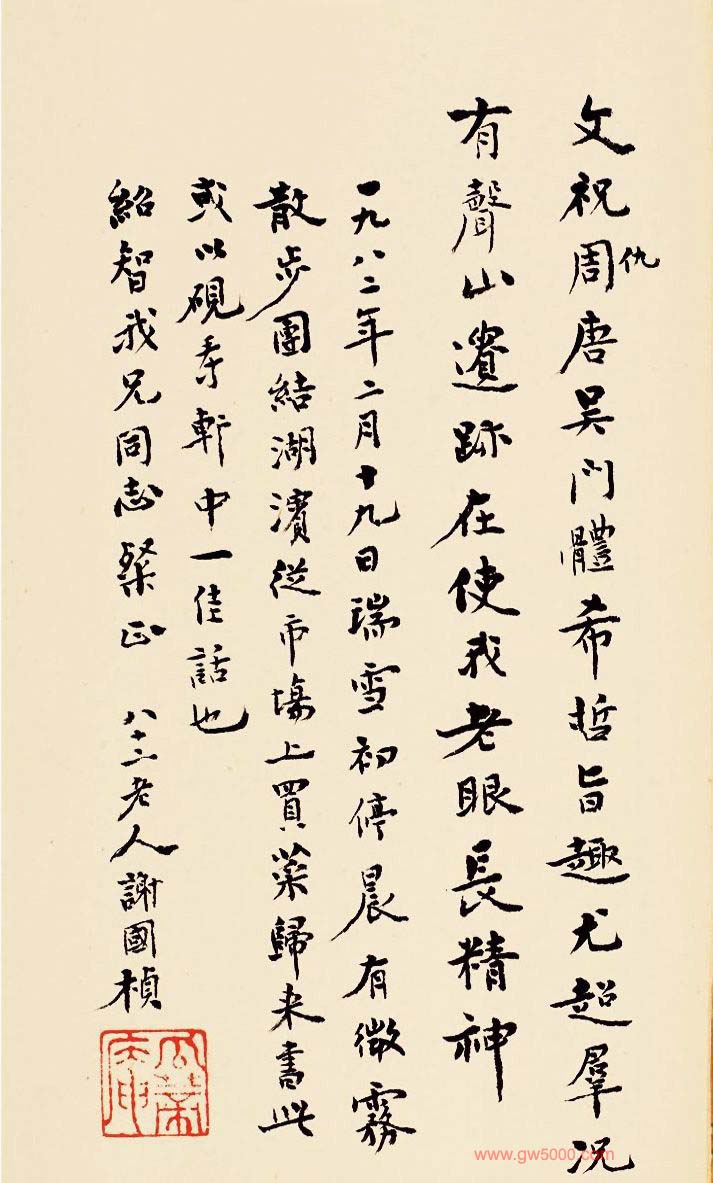 文祝周唐吴門體希哲旨趣尤超羣况
仇
有聲山遺跡在使我老眼長精神
一九八二年二月十九日瑞雪初停晨有微霧
散步團結湖濱從市場上買菜歸来書此
或以硯香軒中一佳話也
紹智我兄同志粲正 八十二老人謝國楨
www.gw5000.com